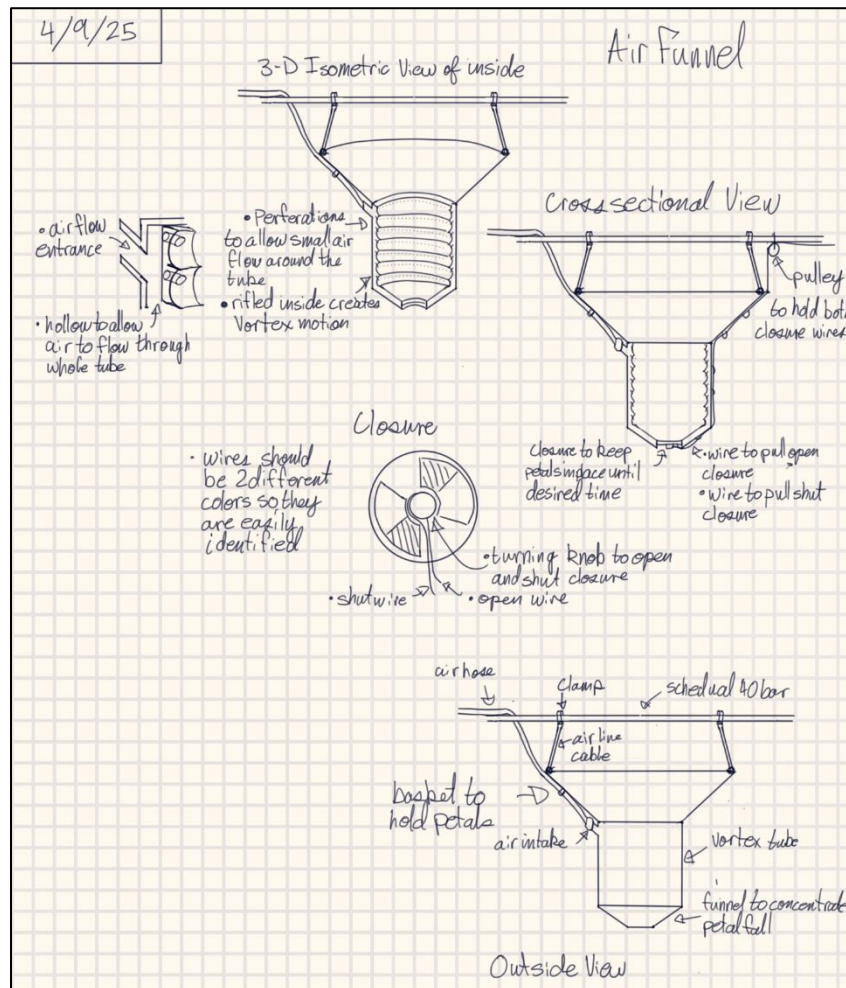 4/9/25
Air Funnel
3-D Isometric View of inside
• air flow
entrance
• hollow to allow
air to flow through
whole tube
• Perforations
to allow small air
flow around the
tube
• rifled inside creates
Vortex motion
Cross sectional View
pulley
to hold both
closure wires
closure to keep
petals in place until
desired time
• wire to pull open
closure
• wire to pull shut
closure
Closure
• wires should
be 2 different
colors so they
are easily
identified
• turning knob to open
and shut closure
• shut wire
• open wire
air hose
clamp
schedual 40 bar
air line
cable
basket to
hold petals
air intake
vortex tube
funnel to concentrate
petal fall
Outside View